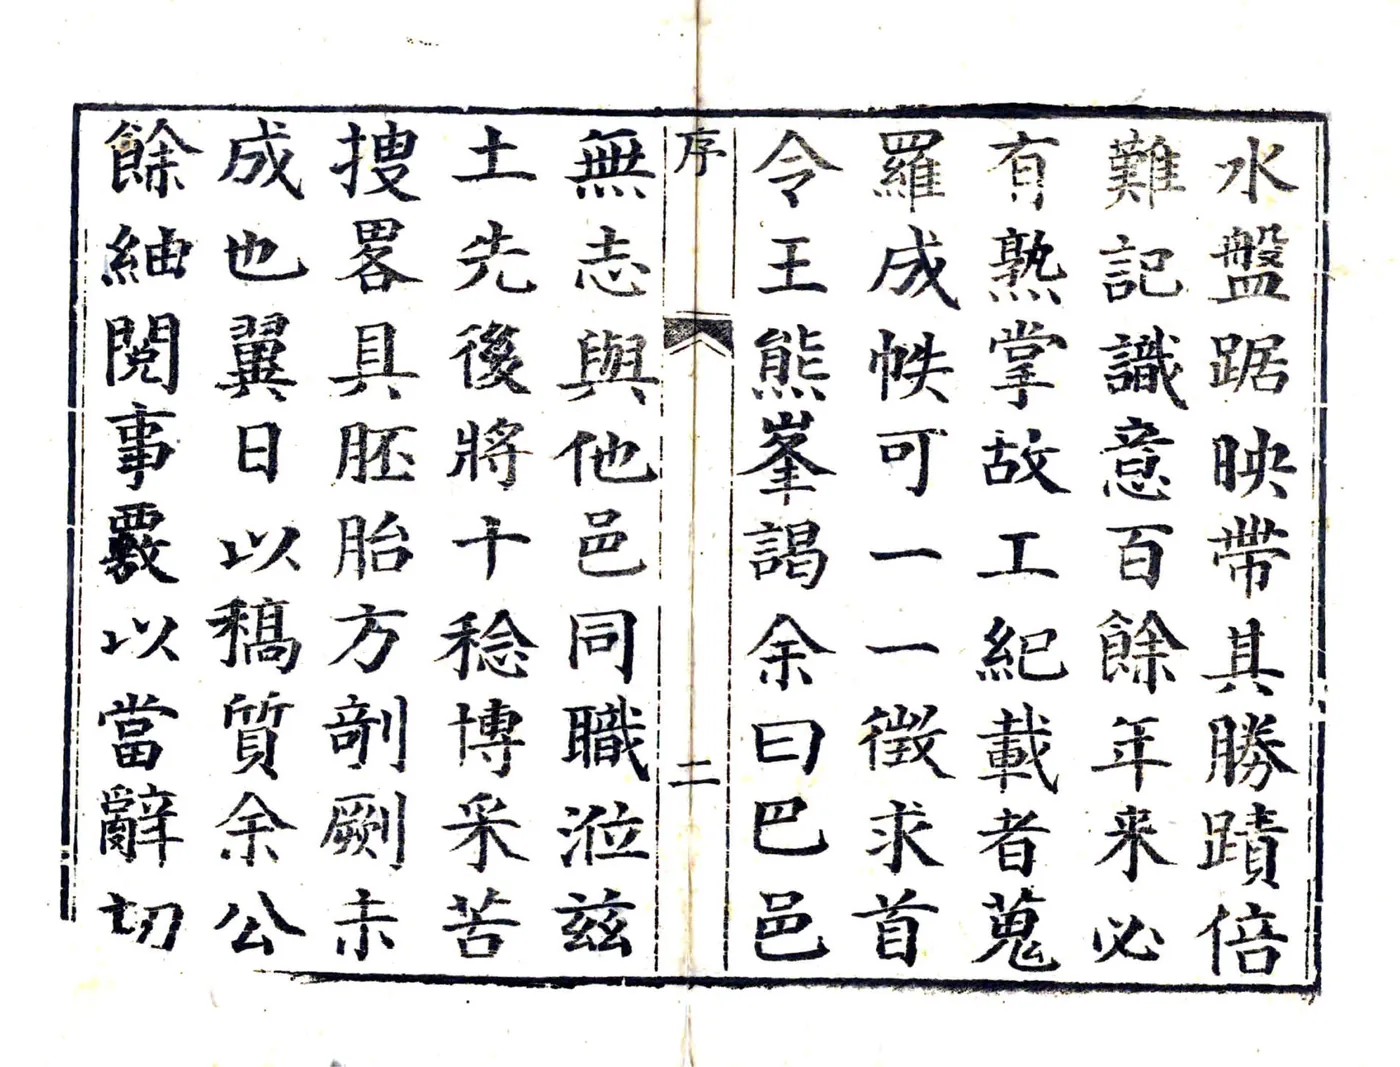 水盤踞映帶其勝蹟倍
難記識意百餘年来必
有熟掌故工紀載者蒐
羅成帙可一一徵求首
令王熊峯謁余曰巴邑
序
二
無志與他邑同職涖茲
土先後將十稔博采苦
搜畧具胚胎方剞劂未
成也翼日以稿質余公
餘紬閱事覈以當辭切